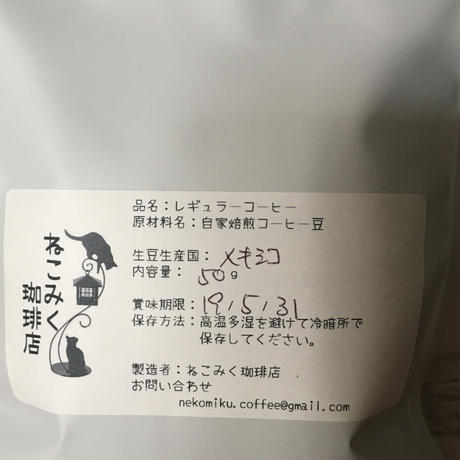 ねこみく
珈琲店
品名：レギュラーコーヒー
原材料名：自家焙煎コーヒー豆
生豆生産国：メキシコ
内容量：50g
賞味期限：19/5/31
保存方法：高温多湿を避けて冷暗所で
保存してください。
製造者：ねこみく珈琲店
お問い合わせ
nekomiku.coffee@gmail.com